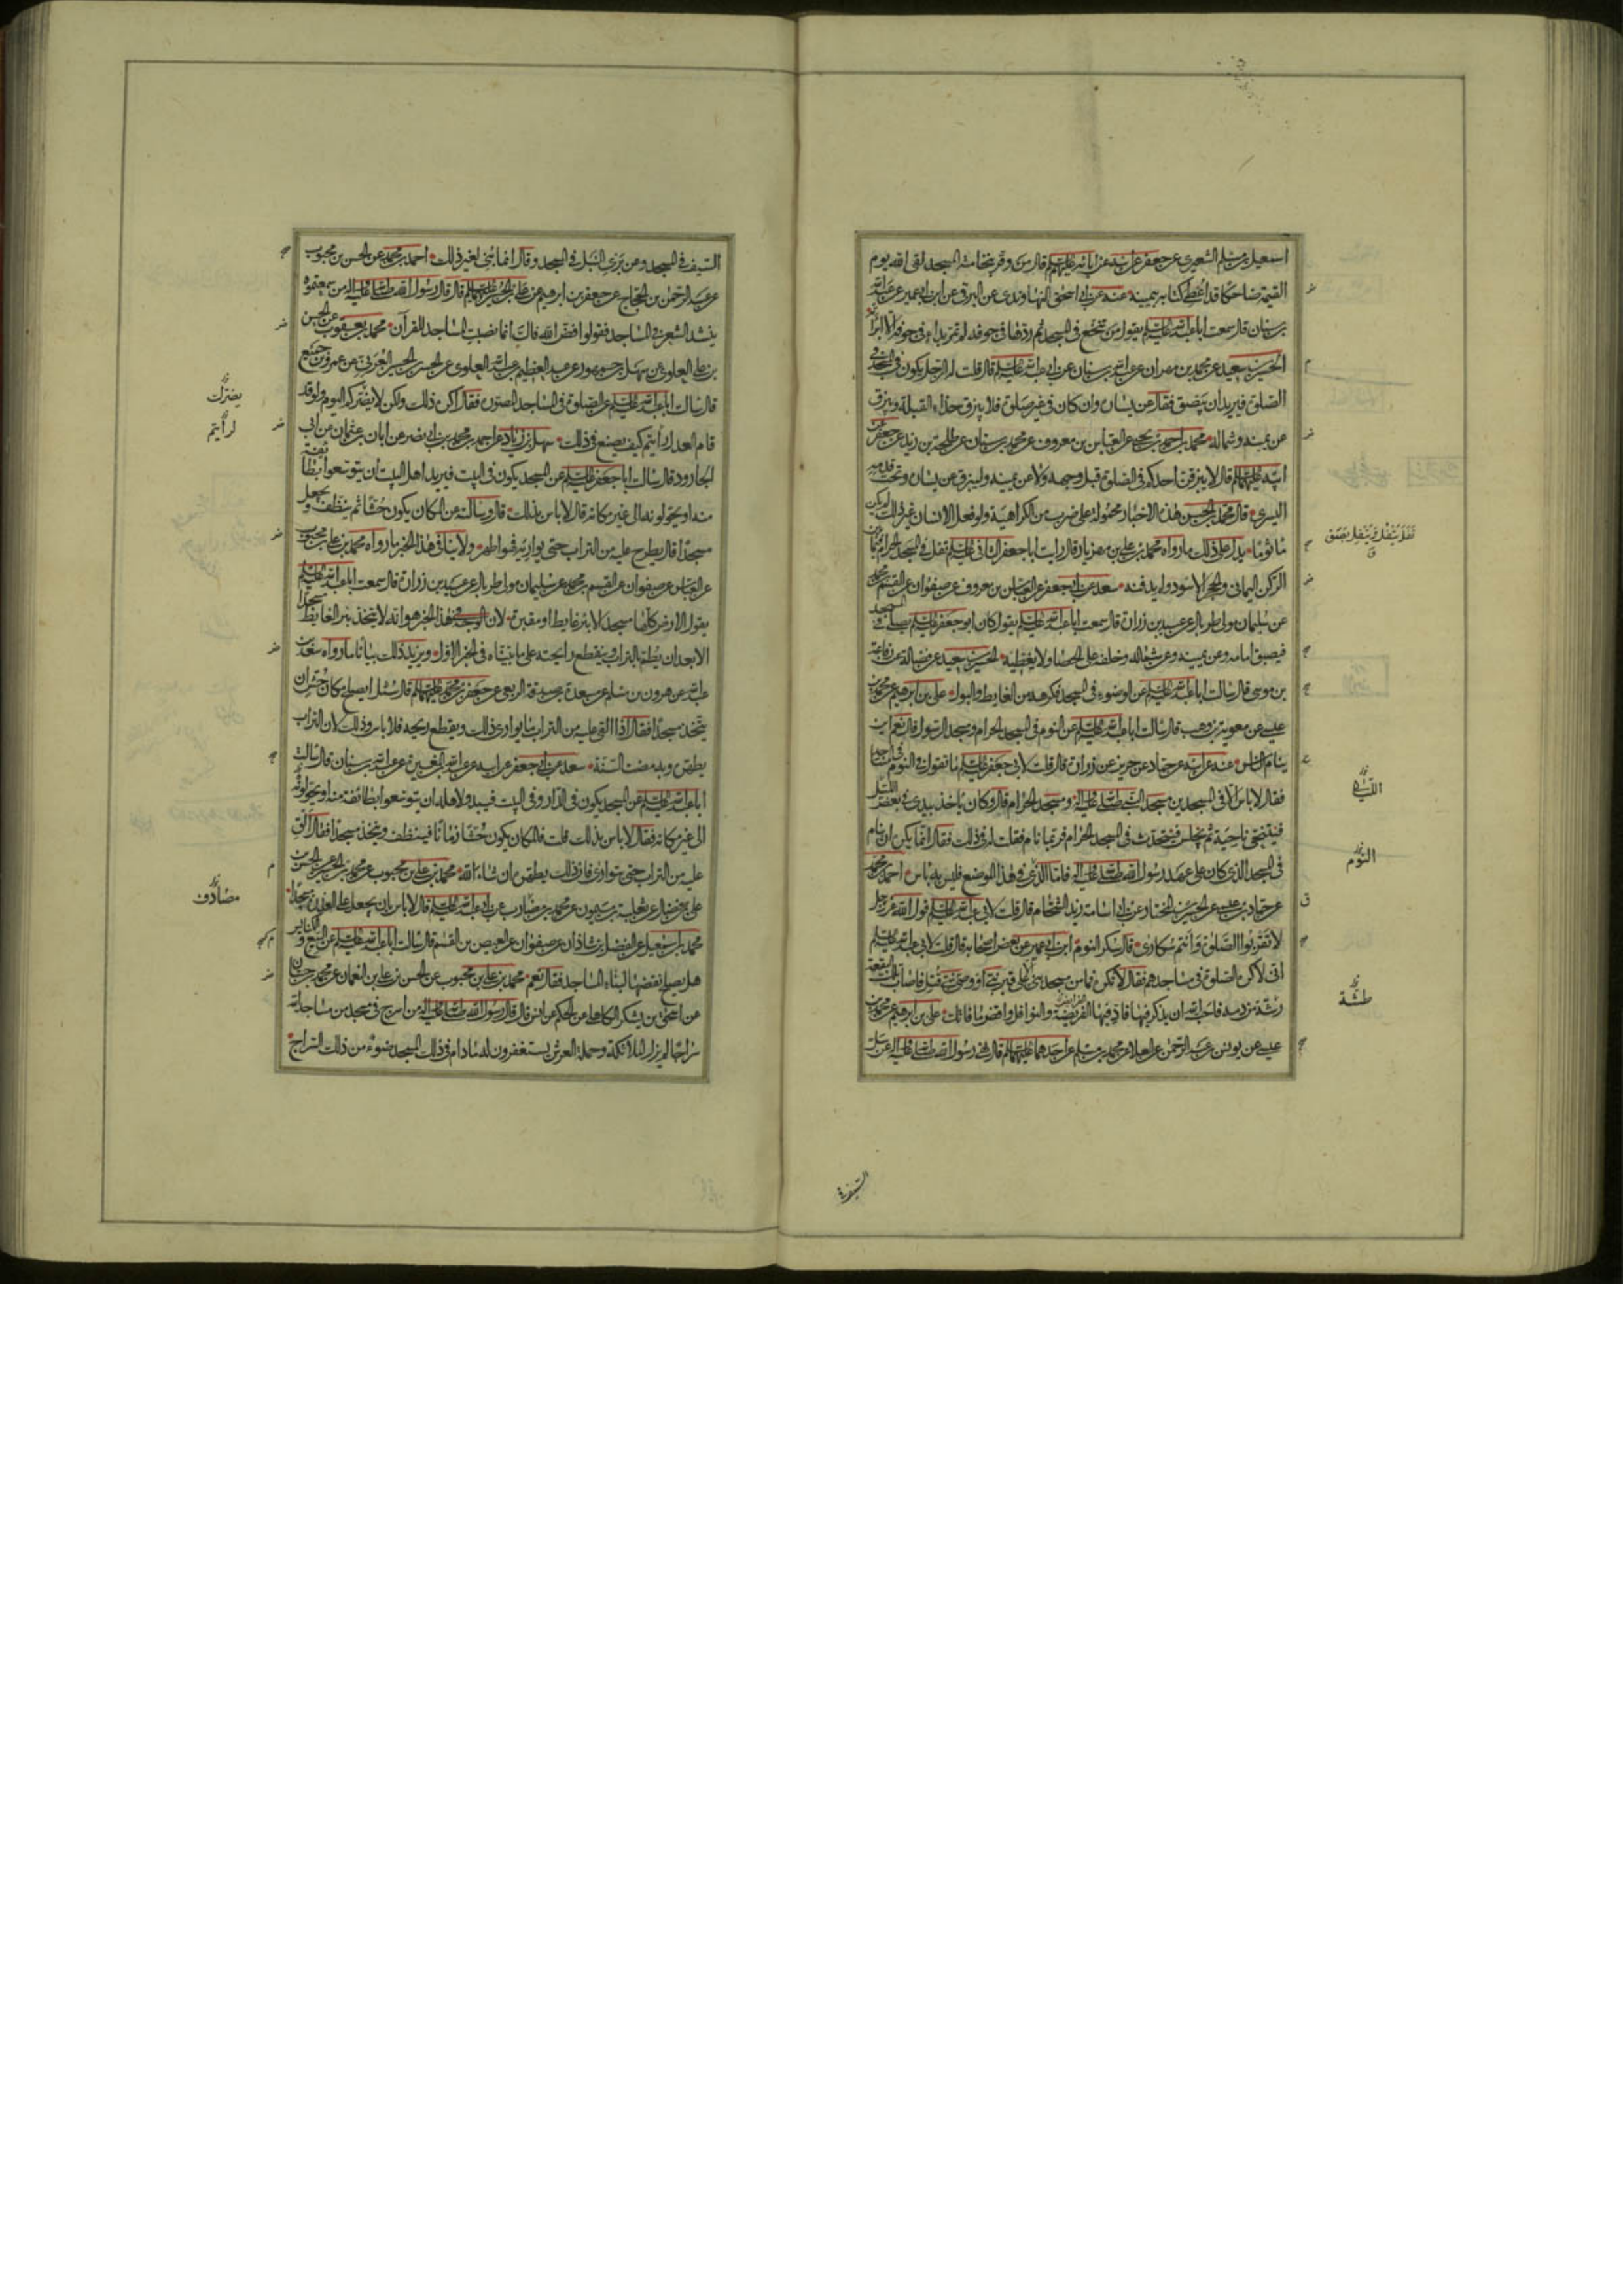 اسمعيل بن مسلم الشعيرى عن جعفر عن ابيه عن ابائه عليهم السلام قال من وقر بنخامته المسجد لقى الله يوم
القيمة ضاحكا قد اعطى كتابه بيمينه عنه عن ابى اسحق النهاوندى عن البرقى عن ابن ابى عمير عن عبد الله
بن سنان قال سمعت ابا عبد الله عليه السلام يقول من تنخع فى المسجد ثم ردها فى جوفه لم تمر بداء فى جوفه الا ابرأته
الحسين بن سعيد عن محمد بن مهران عن عبد الله بن سنان عن ابى عبد الله عليه السلام قال قلت له الرجل يكون فى المسجد فى
الصلوة فيريد ان يبصق فقال عن يساره وان كان فى غير صلوة فلا يبزق حذاء القبلة ويبزق
عن يمينه وشماله محمد بن احمد بن يحيى عن العباس بن معروف عن محمد بن سنان عن طلحة بن زيد عن جعفر عن
ابيه عليهما السلام قال لا يبزقن احدكم فى الصلوة قبل وجهه ولا عن يمينه وليبزق عن يساره وتحت قدمه
اليسرى قال محمد بن الحسن هذه الاخبار محمولة على ضرب من الكراهية ولو فعل الانسان غير ذلك لم يكن
مأثوما يدل على ذلك ما رواه محمد بن على بن مهزيار قال رايت ابا جعفر الثانى عليه السلام تفل فى المسجد الحرام فيما بين
الركن اليمانى والحجر الاسود ولم يدفنه سعد عن ابى جعفر عن العباس بن معروف عن صفوان عن القسم بن محمد
عن سليمان مولى طربال عن عبيد بن زرارة قال سمعت ابا عبد الله عليه السلام يقول كان ابو جعفر عليه السلام يصلى فى المسجد
فيبصق امامه وعن يمينه وعن شماله وخلفه على الحصا ولا يغطيه الحسين بن سعيد عن فضالة عن رفاعة
بن موسى قال سالت ابا عبد الله عليه السلام عن الوضوء فى المسجد فكرهه من الغايط والبول على بن ابرهيم عن محمد بن
عيسى عن معوية بن وهب قال سالت ابا عبد الله عليه السلام عن النوم فى المسجد الحرام ومسجد الرسول قال نعم اين
ينام الناس عنه عن ابيه عن حماد عن حريز عن زرارة قال قلت لابى جعفر عليه السلام ما تقول فى النوم فى المساجد
فقال لا باس الا فى المسجدين مسجد النبى صلى الله عليه واله ومسجد الحرام قال وكان ياخذ بيدى فى بعض الليل
فيتنحى ناحية ثم يجلس فيتحدث فى المسجد الحرام فربما نام فقلت له فى ذلك فقال انما يكره ان ينام
فى المسجد الذى كان على عهد رسول الله صلى الله عليه واله فاما الذى فى هذا الموضع فليس به باس احمد بن محمد
عن حماد بن عيسى عن الحسين بن المختار عن ابى اسامة زيد الشحام قال قلت لابى عبد الله عليه السلام قول الله عز وجل
لا تقربوا الصلوة وانتم سكارى قال سكر النوم ابن ابى عمير عن بعض اصحابه قال قلت لابى عبد الله عليه السلام
انى لاكره الصلوة فى مساجدهم فقال لا تكره فما من مسجد بنى الا على قبر نبى او وصى نبى قتل فاصاب تلك البقعة
رشة من دمه فاحب الله ان يذكر فيها فاد فيها الفريضة والنوافل واقض ما فاتك على بن ابرهيم عن محمد بن
عيسى عن يونس بن عبد الرحمن عن العلا عن محمد بن مسلم عن احدهما عليهما السلام قال نهى رسول الله صلى الله عليه واله عن سل
تفل يتفل ويتفل بصق
ق
النوم
طشة
السيف فى المسجد وعن برى النبل فى المسجد وقال انما بنى لغير ذلك احمد بن محمد عن الحسن بن محبوب
عن عبد الرحمن بن الحجاج عن جعفر بن ابرهيم عن على بن الحسين عليهما السلام قال قال رسول الله صلى الله عليه واله من سمعتموه
ينشد الشعر فى المساجد فقولوا فض الله فاك انما نصبت المساجد للقرآن محمد بن يعقوب عن الحسن
بن على العلوى عن سهل بن جمهور عن عبد العظيم بن عبد الله العلوى عن الحسن بن الحسين العرنى عن عمرو بن جميع
قال سالت ابا عبد الله عليه السلام عن الصلوة فى المساجد المصورة فقال اكره ذلك ولكن لا يضركم اليوم ولو قد
قام العدل رأيتم كيف يصنع فى ذلك سهل بن زياد عن احمد بن محمد بن ابى نصر عن ابان بن عثمان عن ابى
الجارود قال سالت ابا جعفر عليه السلام عن المسجد يكون فى البيت فيريد اهل البيت ان يتوسعوا بطائفة
منه او يحولونه الى غير مكانه قال لا باس بذلك قال وسالته عن المكان يكون حشا ثم ينظف ويجعل
مسجدا قال يطرح عليه من التراب حتى يواريه فهو اطهر ولا ينافى هذا الخبر ما رواه محمد بن على بن محبوب
عن العباس عن صفوان عن القسم بن محمد عن سليمان مولى طربال عن عبيد بن زرارة قال سمعت ابا عبد الله عليه السلام
يقول الارض كلها مسجد الا بئر غايط او مقبرة لان الوجه فى هذا الخبر هو انه لا يتخذ بئر الغايط مسجدا
الا بعد ان يطم بالتراب وينقطع رايحته على ما بيناه فى الخبر الاول ويزيد ذلك بيانا ما رواه سعد بن
عبد الله عن هرون بن مسلم عن مسعدة بن صدقة الربعى عن جعفر بن محمد عليهما السلام قال سئل ايصلح مكان حش ان
يتخذ مسجدا فقال اذا القى عليه من التراب ما يوارى ذلك ويقطع ريحه فلا باس وذلك لان التراب
يطهره وبه مضت السنة سعد عن ابى جعفر عن ابيه عن عبد الله بن المغيرة عن عبد الله بن سنان قال سالت
ابا عبد الله عليه السلام عن المسجد يكون فى الدار وفى البيت فيبدو لاهله ان يتوسعوا بطائفة منه او يحولوه
الى غير مكانه فقال لا باس بذلك قلت فالمكان يكون حشا زمانا فينظف ويتخذ مسجدا فقال الق
عليه من التراب حتى يتوارى فان ذلك يطهره ان شاء الله محمد بن على بن محبوب عن محمد بن الحسين عن الحسن بن
على بن فضال عن ثعلبة بن ميمون عن محمد بن مضارب عن ابى عبد الله عليه السلام قال لا باس بان يجعل على العذرة مسجدا
محمد بن اسمعيل عن الفضل بن شاذان عن صفوان عن العيص بن القسم قال سالت ابا عبد الله عليه السلام عن البيع والكنايس
هل يصلح نقضها لبناء المساجد فقال نعم محمد بن على بن محبوب عن الحسن بن على بن النعمان عن محمد بن حسان
عن اسحق بن يشكر الكاهلى عن الحكم عن انس قال قال رسول الله صلى الله عليه واله من اسرج فى مسجد من مساجد الله
سراجا لم يزل الملائكة وحملة العرش يستغفرون له ما دام فى ذلك المسجد ضوء من ذلك السراج
يضرك
لرأيتم
مصادف